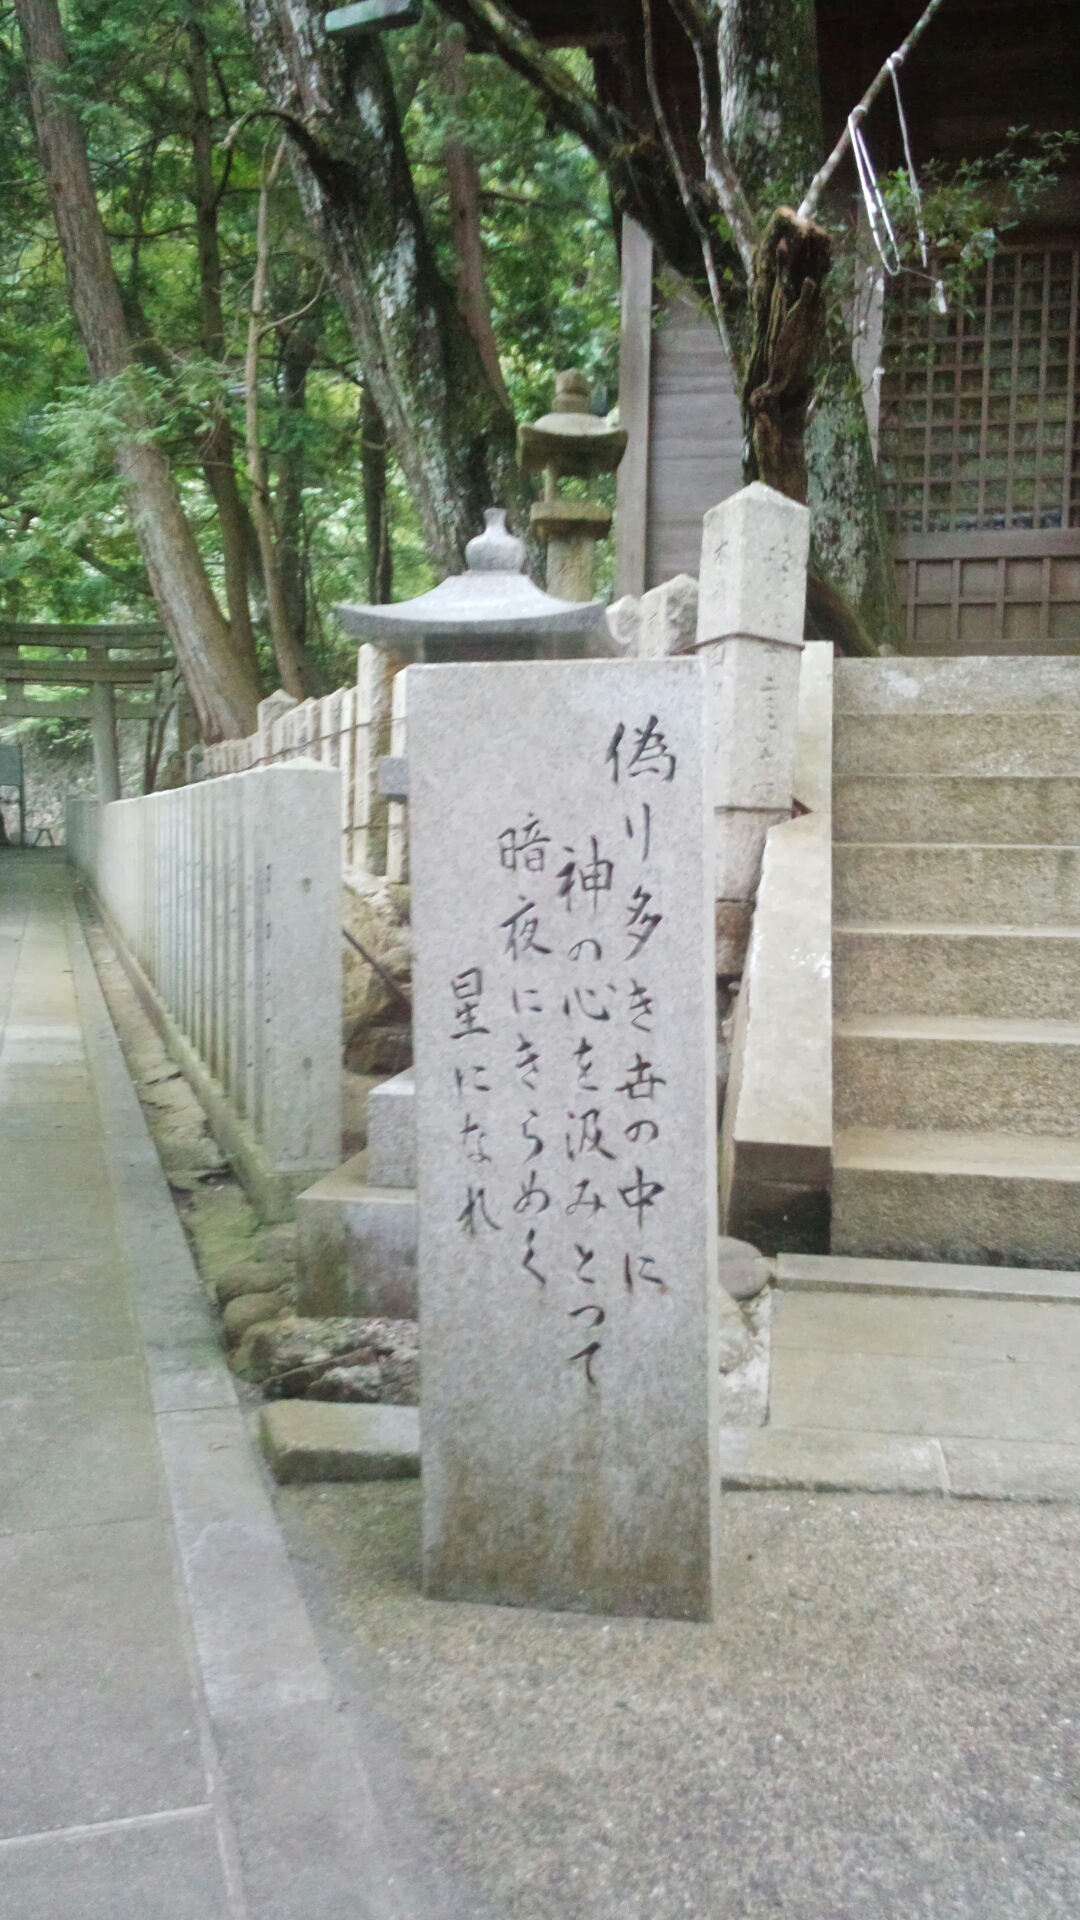 偽り多き世の中に
神の心を汲みとって
暗夜にきらめく
星になれ